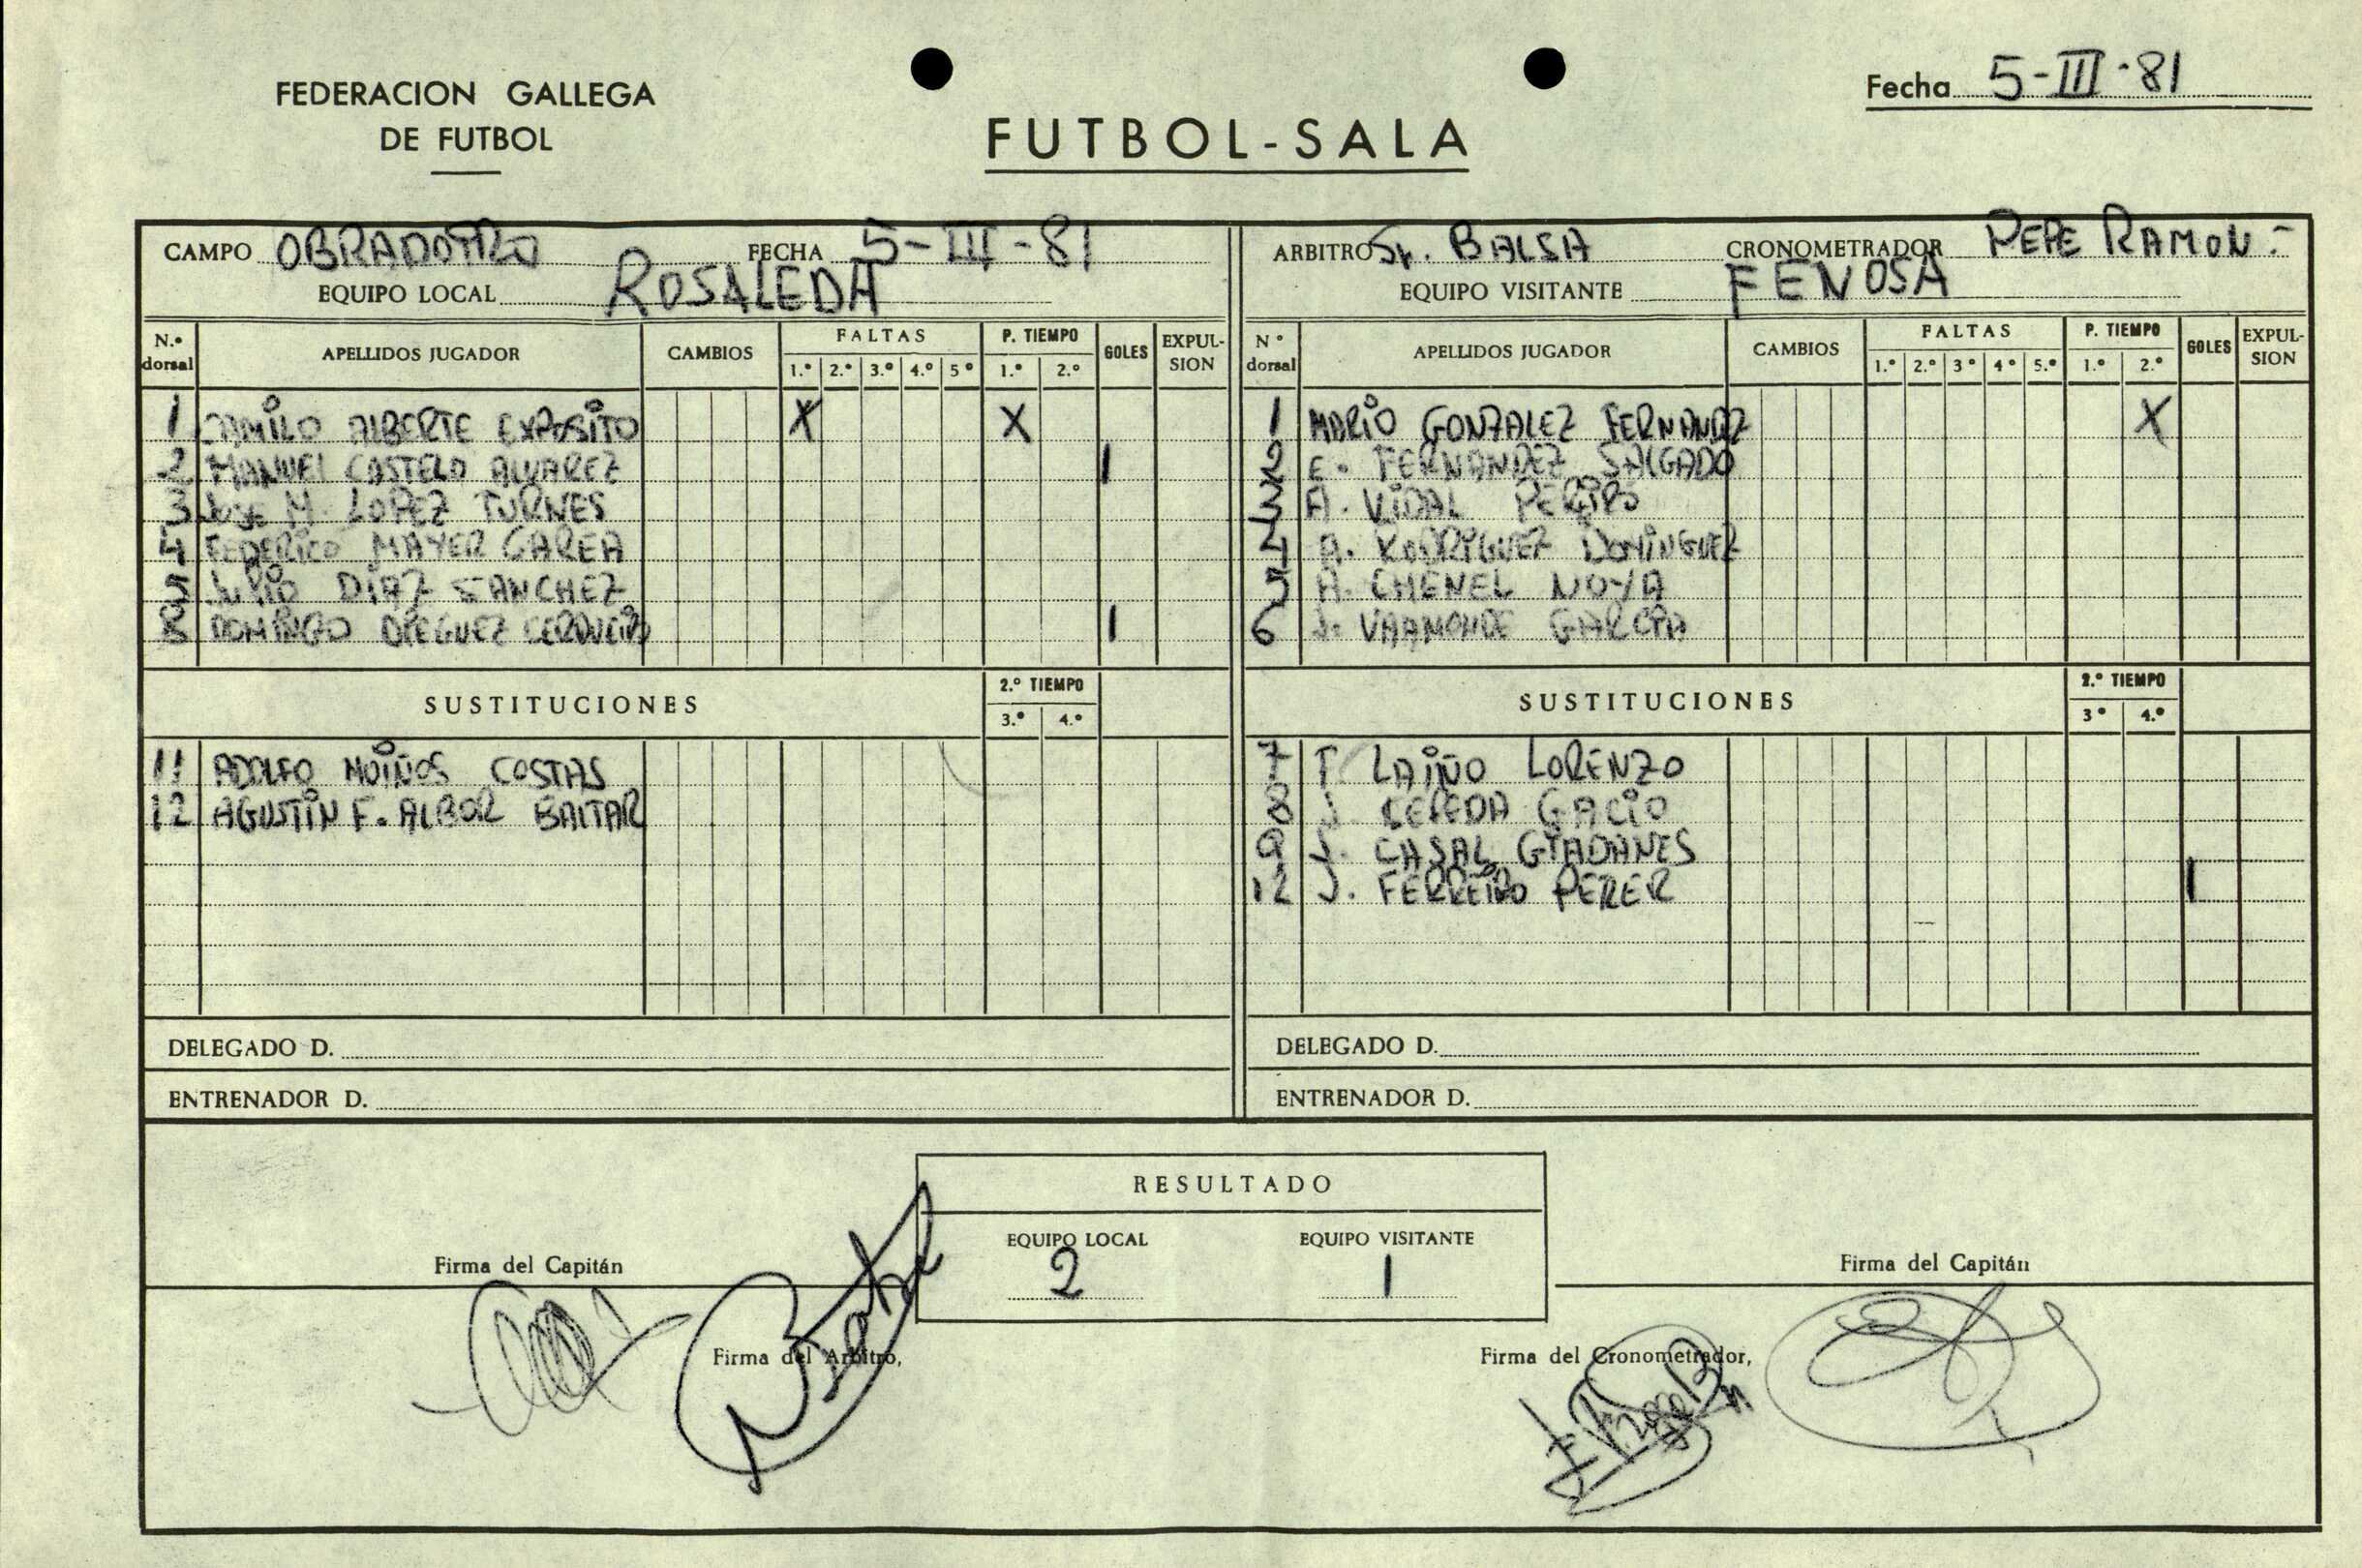 FEDERACION GALLEGA
DE FUTBOL
FUTBOL-SALA
Fecha 5-III-81
CAMPO OBRADOIRO FECHA 5-III-81
EQUIPO LOCAL ROSALEDA
N.º dorsal APELLIDOS JUGADOR CAMBIOS FALTAS 1.º 2.º 3.º 4.º 5º P. TIEMPO 1.º 2.º GOLES EXPULSION
1 CAMILO ALBERTE EXPOSITO X X
2 MANUEL CASTELO ALVAREZ 1
3 JOSE M. LOPEZ TURNES
4 FEDERICO MAYER GAREA
5 JULIO DIAZ SANCHEZ
8 DOMINGO DIEGUEZ CERDUEIRO 1
SUSTITUCIONES 2.º TIEMPO 3.º 4.º
11 ADOLFO MOIÑOS COSTAS
12 AGUSTIN F. ALBOR BALTAR
DELEGADO D.
ENTRENADOR D.
ARBITRO Sr. BALSA CRONOMETRADOR PEPE RAMON.-
EQUIPO VISITANTE FENOSA
Nº dorsal APELLIDOS JUGADOR CAMBIOS FALTAS 1.º 2.º 3º 4º 5.º P. TIEMPO 1.º 2.º GOLES EXPULSION
1 MARIO GONZALEZ FERNANDEZ X
2 E. FERNANDEZ SALGADO
3 A. VIDAL PEREIRO
4 A. RODRIGUEZ DOMINGUEZ
5 A. CHENEL NOYA
6 J. VAAMONDE GARCIA
SUSTITUCIONES 2.º TIEMPO 3º 4.º
7 T. LAIÑO LORENZO
8 J. CEPEDA GACIO
9 J. CASAL GIADANES
12 J. FERREIRO PERER 1
DELEGADO D.
ENTRENADOR D.
RESULTADO
EQUIPO LOCAL EQUIPO VISITANTE
2 1
Firma del Capitán
Firma del Capitán
Firma del Arbitro,
Firma del Cronometrador,